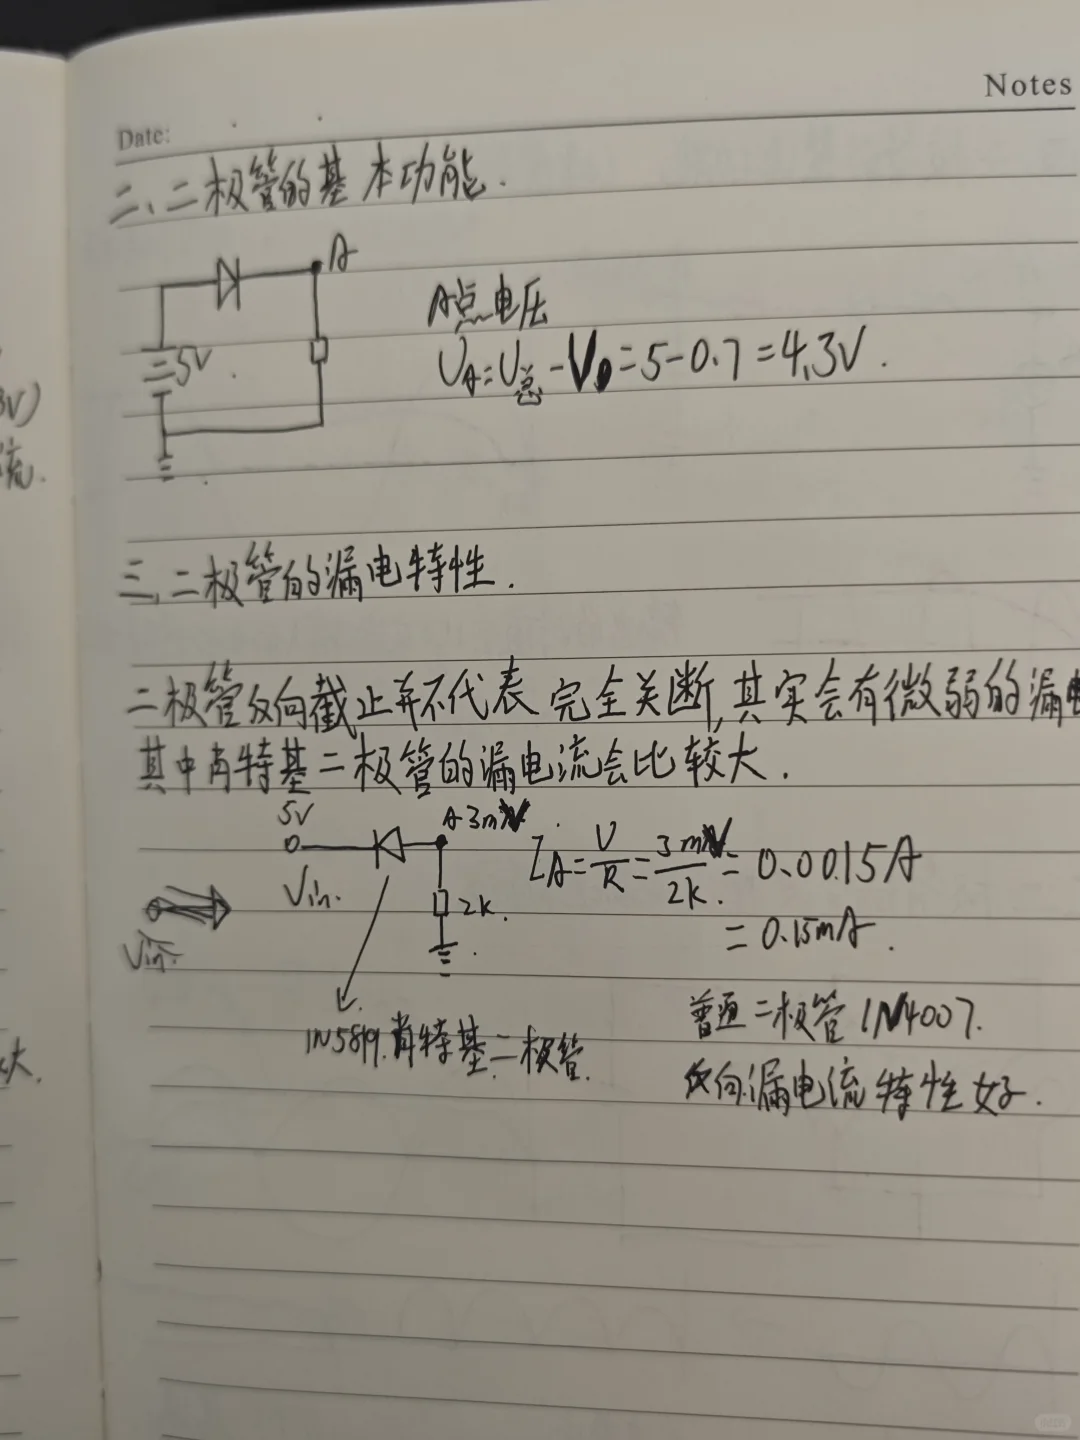 Notes
Date:
二、二极管的基本功能.
A
A点电压
5V
U_A=U总-V_D=5-0.7=4.3V.
3V)
流.
三、二极管的漏电特性.
二极管反向截止并不代表完全关断,其实会有微弱的漏电
其中肖特基二极管的漏电流会比较大.
5V
A 3mV
I_A=V/R=3mV/2k=0.0015A
Vin.
2k.
=0.15mA.
Vin.
1N5819.肖特基二极管.
普通二极管1N4007.
反向漏电流特性好.
大.